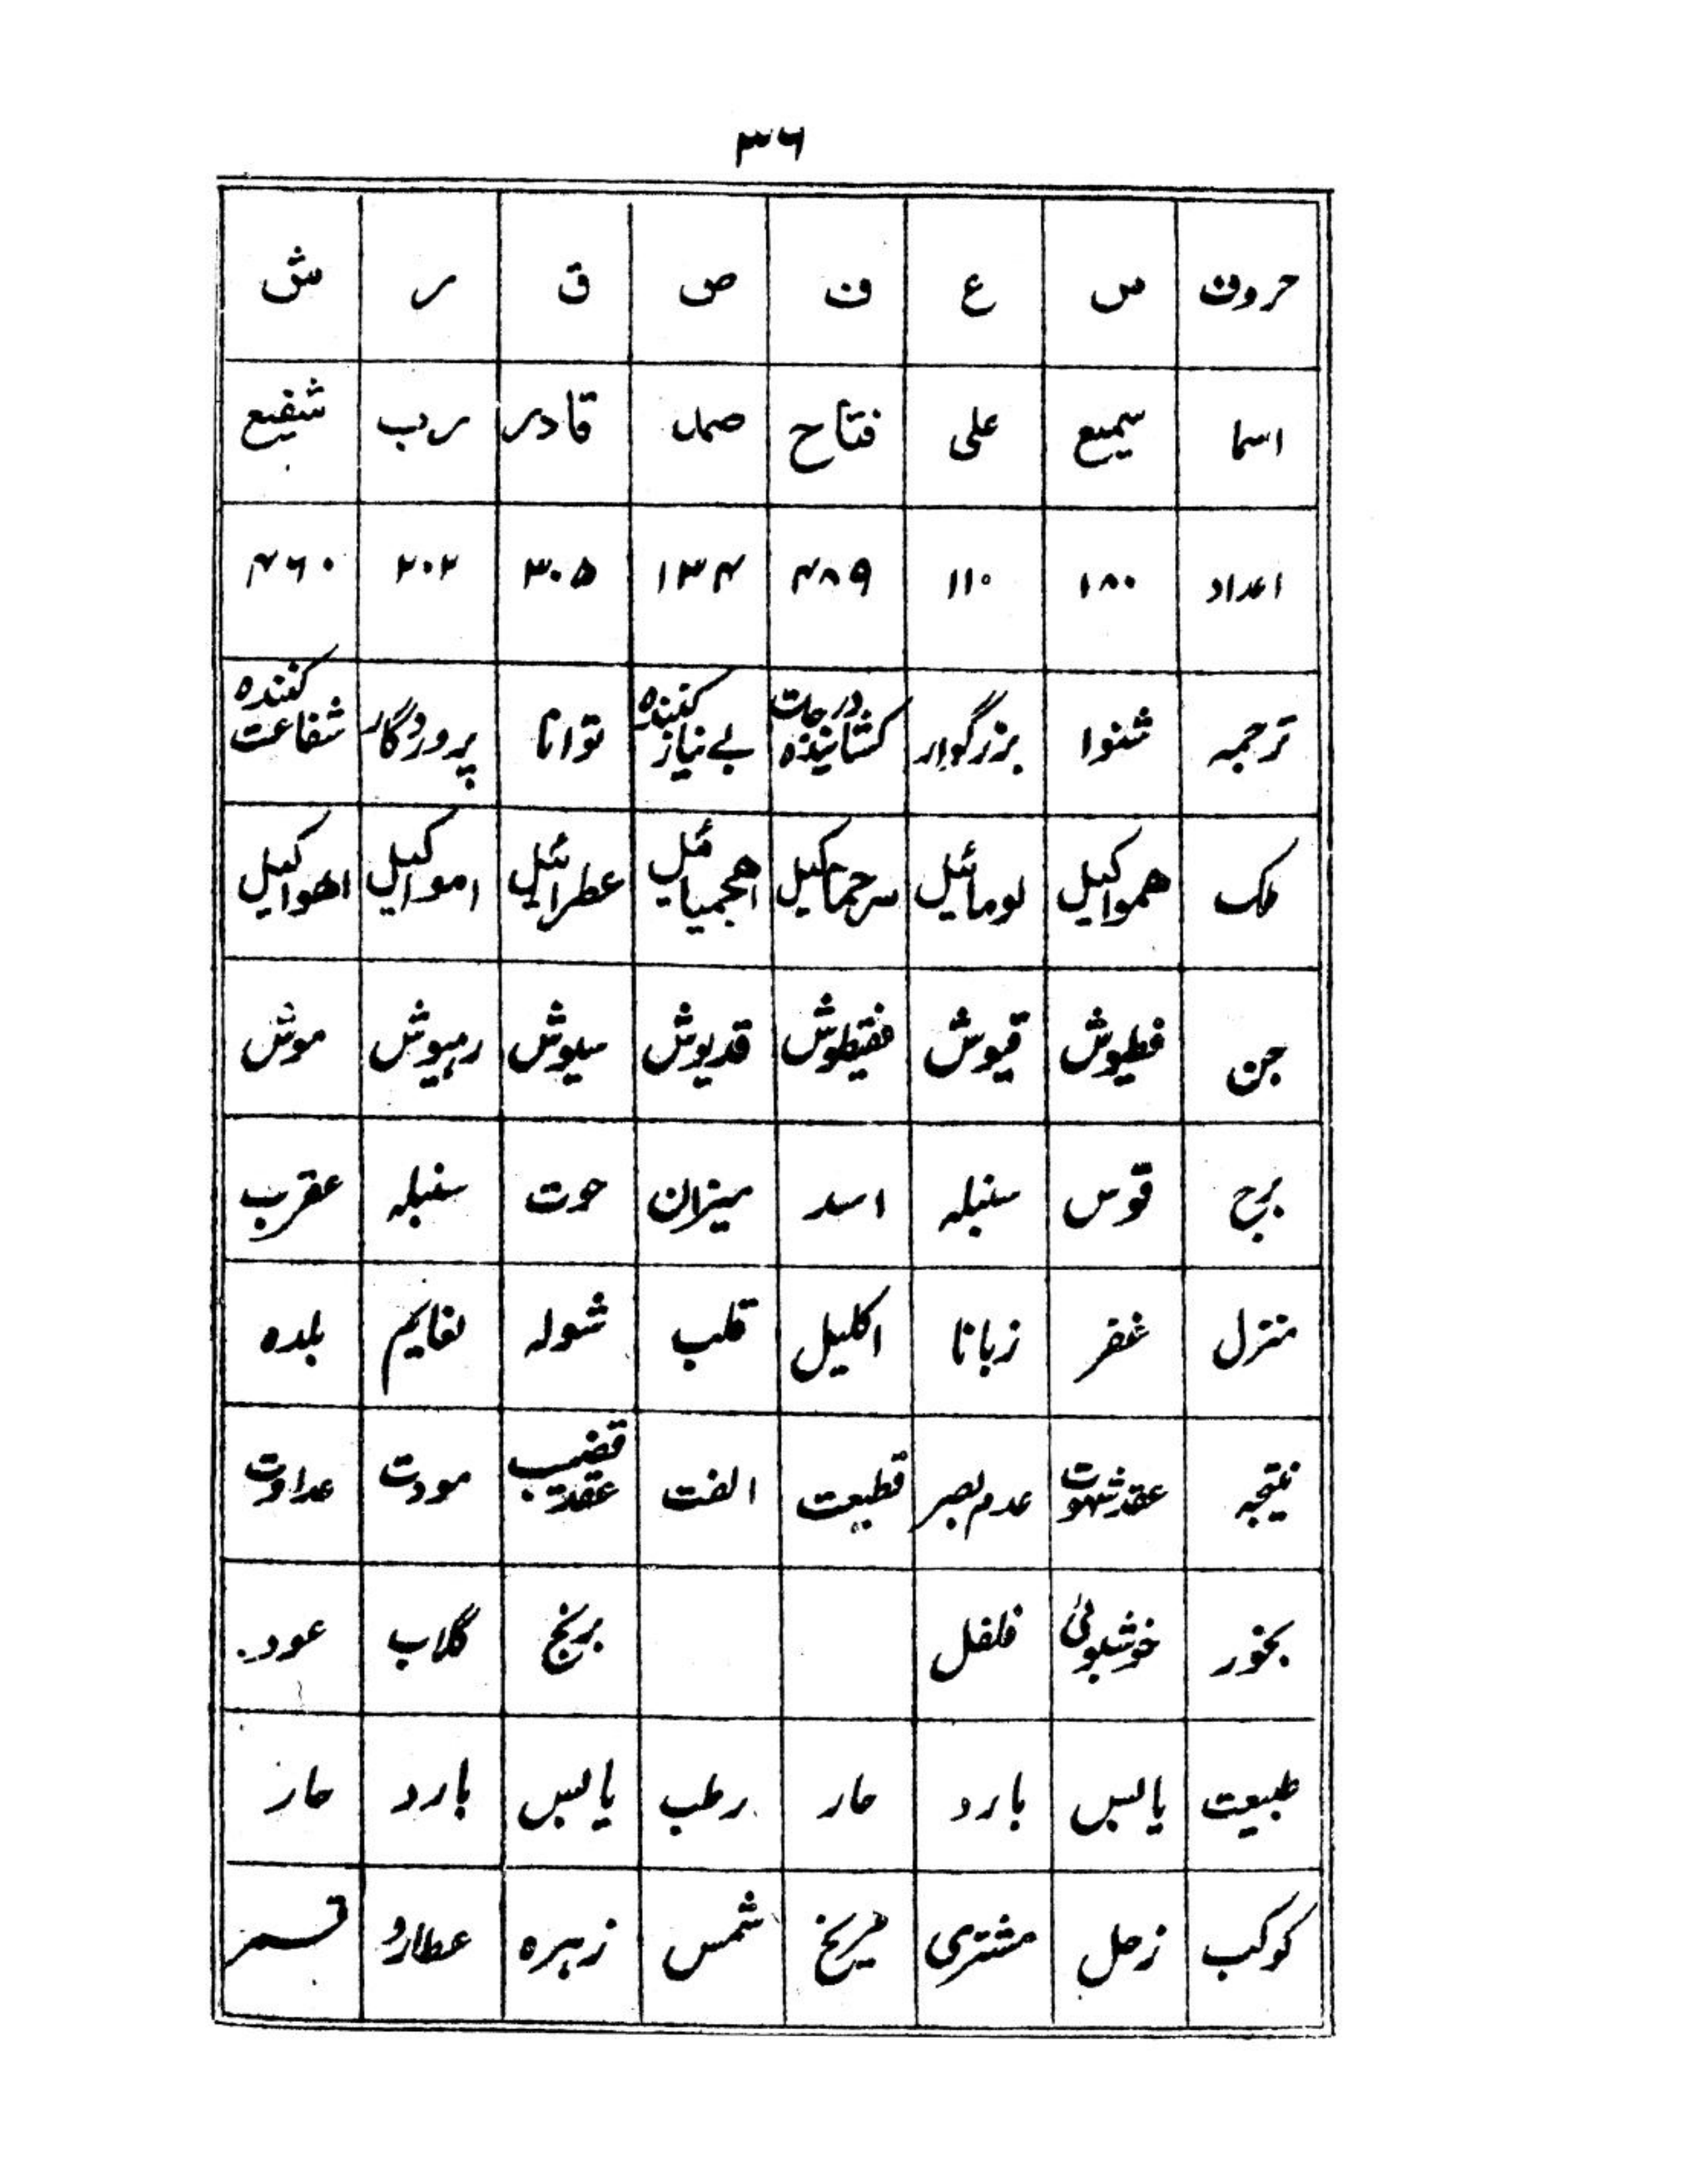 ۳۶
حروف س ع ف ص ق ر ش
اسما سمیع علی فتاح صمد قادر رب شفیع
اعداد ۱۸۰ ۱۱۰ ۴۸۹ ۱۳۴ ۳۰۵ ۲۰۲ ۴۶۰
ترجمہ شنوا بزرگوار کشانیندہ درجات بے نیاز کنندہ توانا پروردگار شفاعت کنندہ
ملک ھمواکیل لومائیل سرحماکیل اھجمیائیل عطرائیل امواکیل اھواکیل
جن فطیوش قیوش فقیطوش قدیوش سیوش رہیوش موش
برج قوس سنبلہ اسد میزان حوت سنبلہ عقرب
منزل غفر زبانا اکلیل قلب شولہ نعایم بلدہ
نتیجہ عقد شہوت عدم بصر قطیعت الفت عقد قضیب مودت عداوت
بخور خوشبوئی فلفل برنج گلاب عود
طبیعت یابس بارد حار رطب یابس بارد حار
کوکب زحل مشتری مریخ شمس زہرہ عطارد قمر